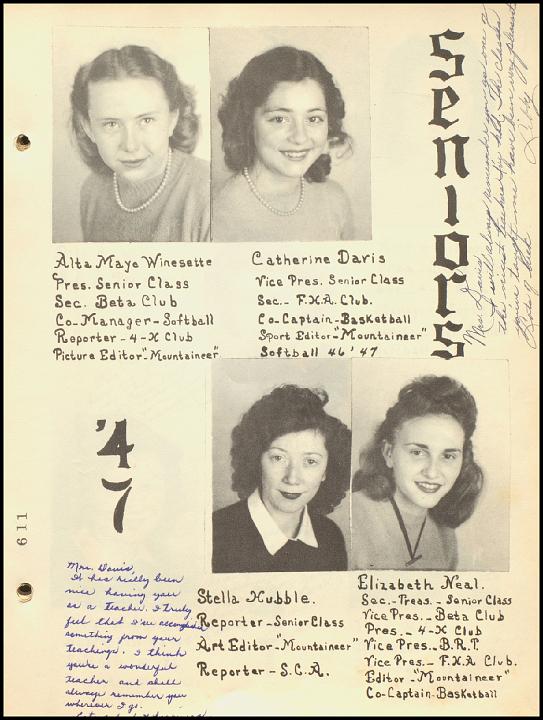 Seniors
Alta Maye Winesette
Pres. Senior Class
Sec. Beta Club
Co-Manager-Softball
Reporter-4-H Club
Picture Editor-"Mountaineer"
Catherine Davis
Vice Pres. Senior Class
Sec.- F.H.A. Club.
Co-Captain-Basketball
Sport Editor-"Mountaineer"
Softball 46 '47
Mrs. Davis,
I will always remember you as one of
the
Lots of luck
Libby
'47
611
Mrs. Davis,
It has really been
nice having you
as a teacher. I truly
feel that I've accomplished
something from your
teachings. I think
you're a wonderful
teacher and shall
always remember you
wherever I go.
Stella Hubble.
Reporter-Senior Class
Art Editor-"Mountaineer"
Reporter-S.C.A.
Elizabeth Neal.
Sec.-Treas.- Senior Class
Vice Pres.- Beta Club
Pres.- 4-H Club
Vice Pres.- B.R.T.
Vice Pres.- F.H.A. Club.
Editor-"Mountaineer"
Co-Captain-Basketball